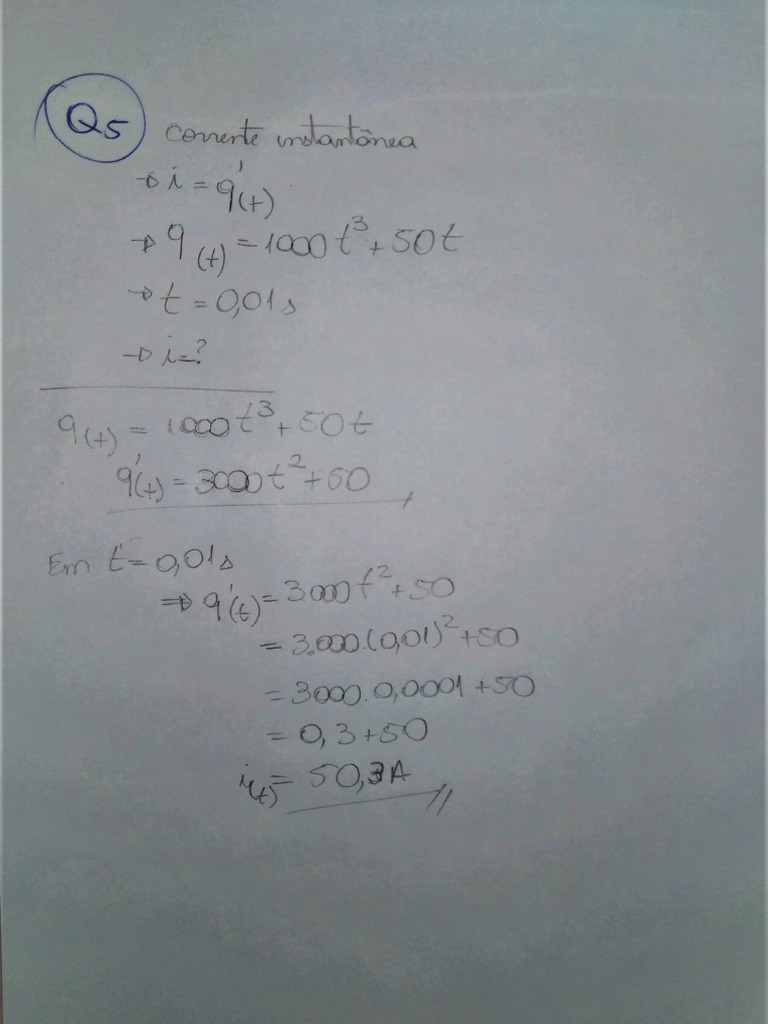 Q5 Corrente instantânea
→ i = q'(t)
→ q(t) = 1000t³ + 50t
→ t = 0,01s
→ i = ?
q(t) = 1000t³ + 50t
q'(t) = 3000t² + 50
Em t = 0,01s
⇒ q'(t) = 3.000t² + 50
= 3.000.(0,01)² + 50
= 3000.0,0001 + 50
= 0,3 + 50
i(t) = 50,3A